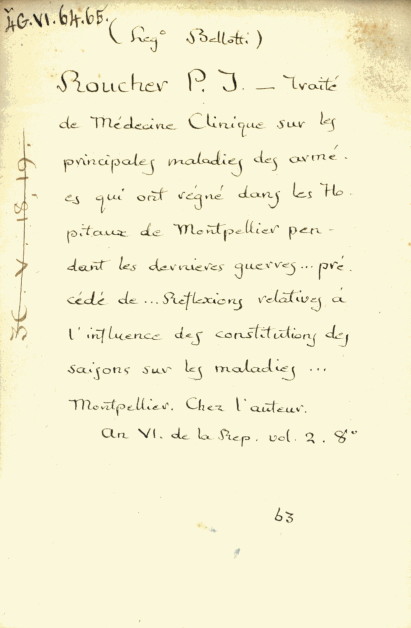 4G.VI.64.65.
(Leg° Bellotti.)
Roucher P. J. — Traité
de Médecine Clinique sur les
principales maladies des armé-
es qui ont régné dans les Ho-
pitaux de Montpellier pen-
dant les dernieres guerres... pré-
cédé de... Reflexions relatives à
l'influence des constitutions des
saisons sur les maladies ...
Montpellier. Chez l'auteur.
An VI. de la Rep. vol. 2. 8°
63
V.18.19.